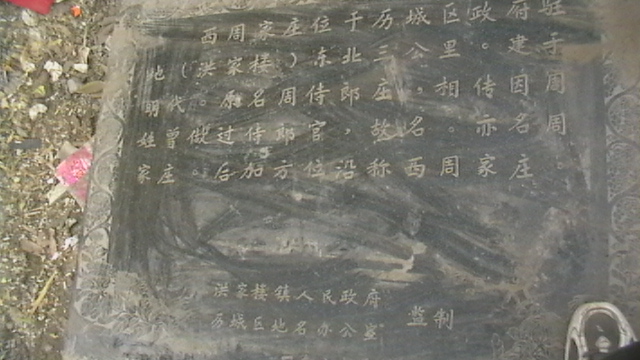 西周家庄位于历城区政府驻
地(洪家楼)东北三公里。建于
明代。原名周侍郎庄，相传因周
姓曾做过侍郎官，故名。亦名周
家庄。后加方位沿称西周家庄。
洪家楼镇人民政府
历城区地名办公室 监制